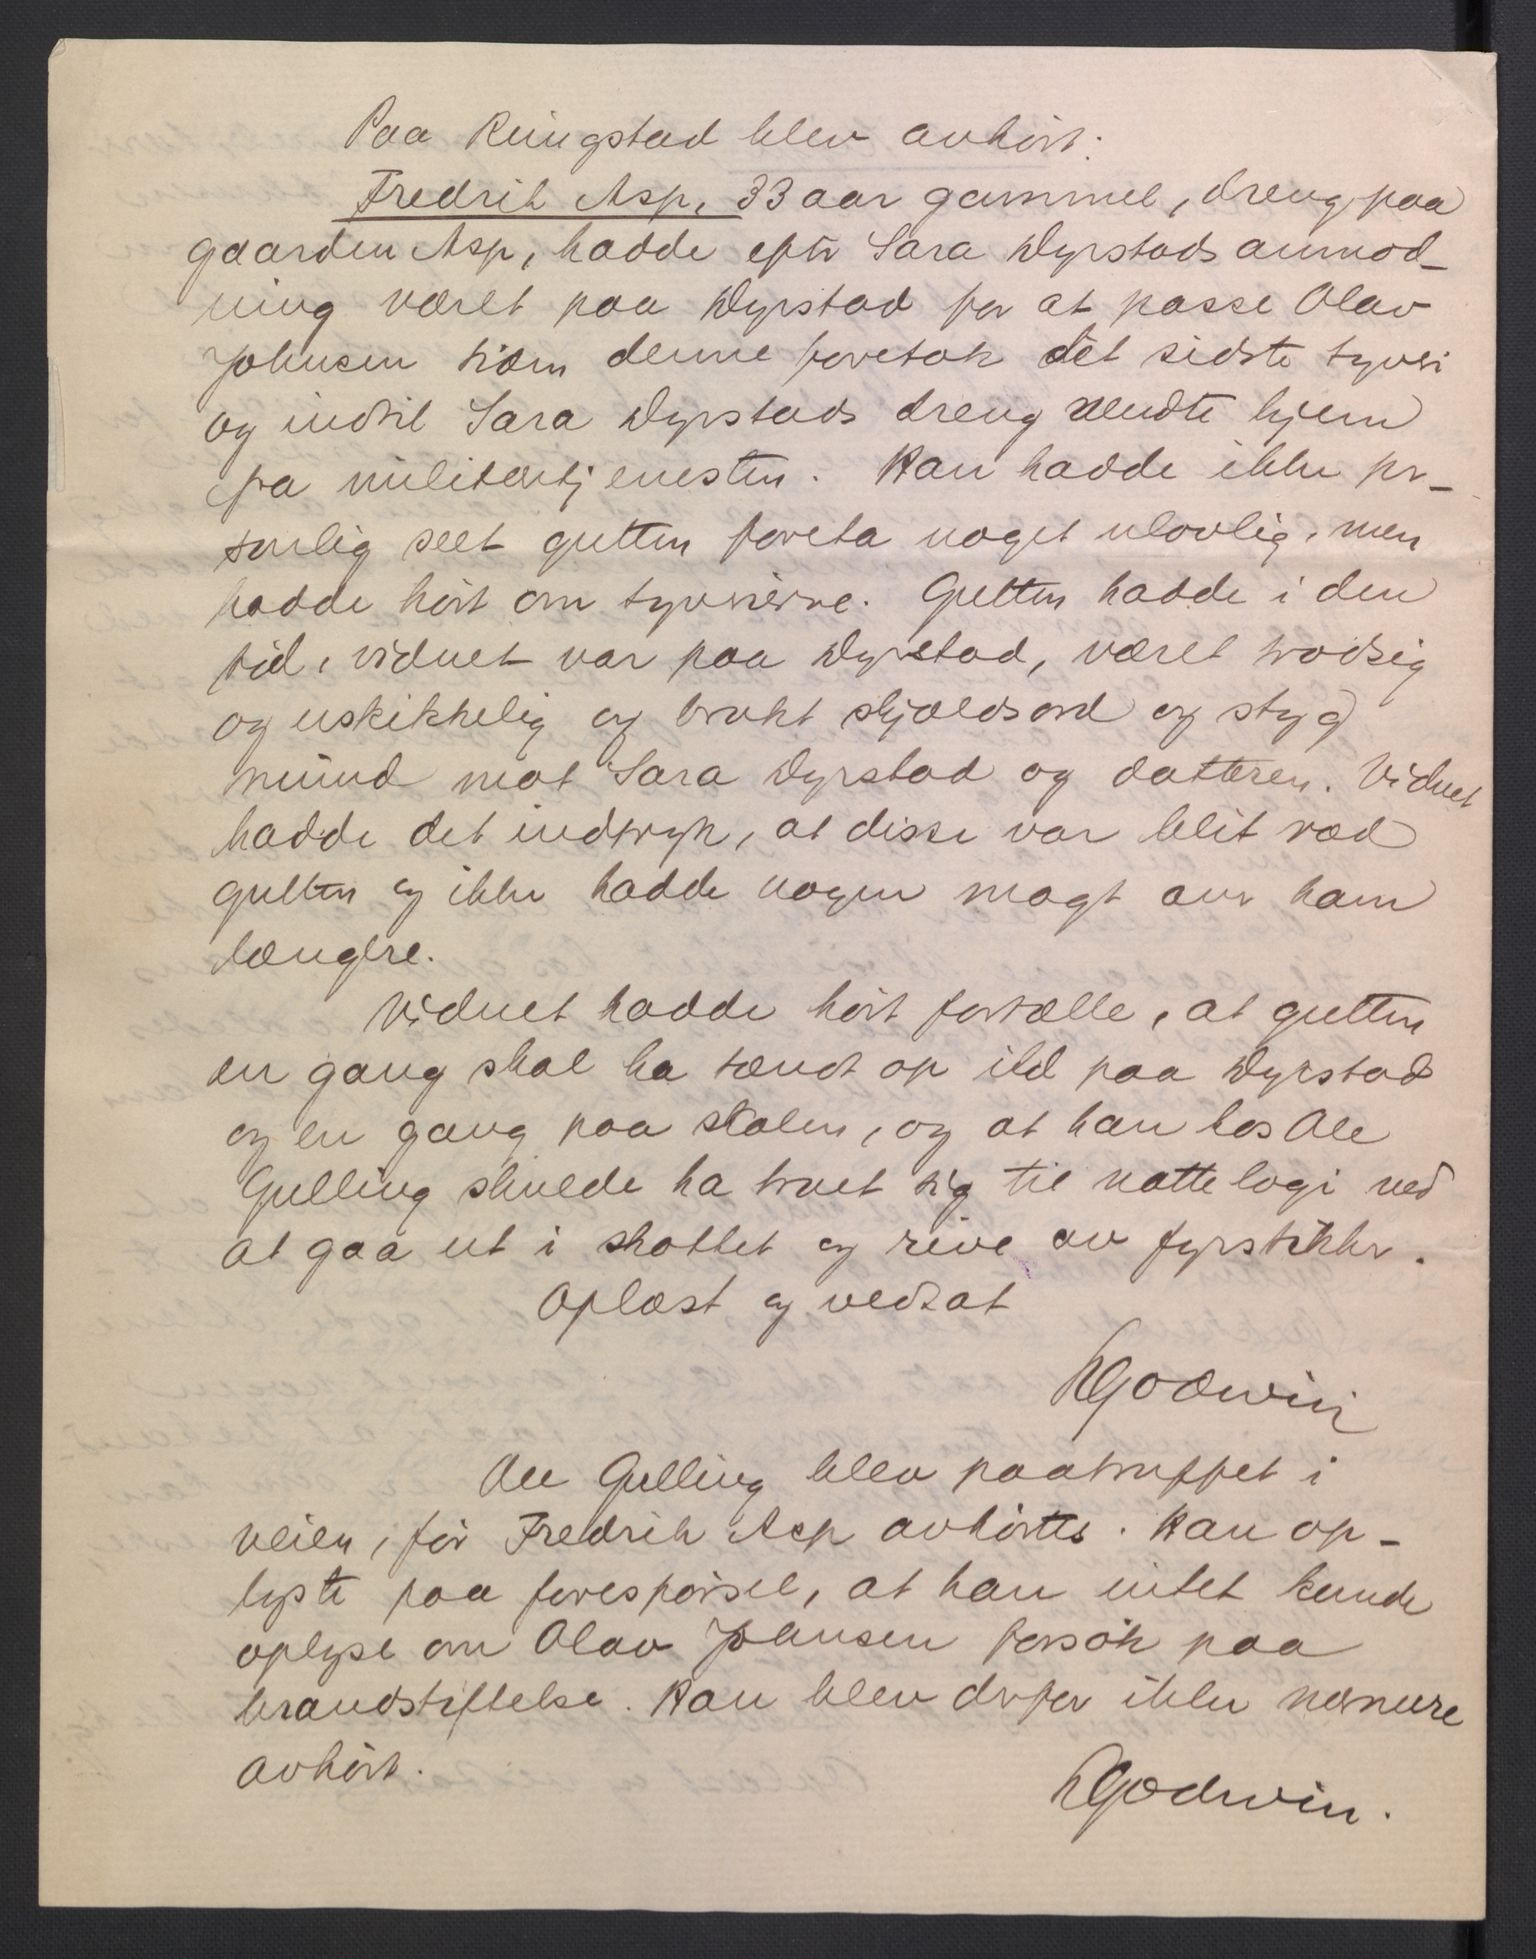 Paa Ringstad blev avhört:
Fredrik Asp, 33 aar gammel, dreng paa
gaarden Asp, hadde efter Sara Dyrstads anmod-
ning været paa Dyrstad for at passe Olav
Johnsen siden denne foretok det sidste tyveri
og indtil Sara Dyrstads dreng vendte hjem
fra militærtjenesten. Han hadde ikke per-
sonlig seet gutten foreta noget ulovlig, men
hadde hört om tyverierne. Gutten hadde i den
tid, vidnet var paa Dyrstad, været trodsig
og uskikkelig og brukt skjældsord og styg
mund mot Sara Dyrstad og datteren. Vidnet
hadde det indtryk, at disse var blit ræd
gutten og ikke hadde nogen magt over ham
længere.
Vidnet hadde hört fortælle, at gutten
en gang skal ha tændt op ild paa Dyrstad
og en gang paa skolen, og at han hos Ole
Gulling skulde ha truet sig til nattelogi ved
at gaa ut i skottet og rive av fyrstikker.
Oplæst og vedtat
HGodwin
Ole Gulling blev paatruffet i
veien, för Fredrik Asp avhörtes. Han op-
lyste paa forespörsel, at han intet kunde
oplyse om Olav Johnsen forsök paa
brandstiftelse. Han blev derfor ikke nærmere
avhört.
HGodwin.